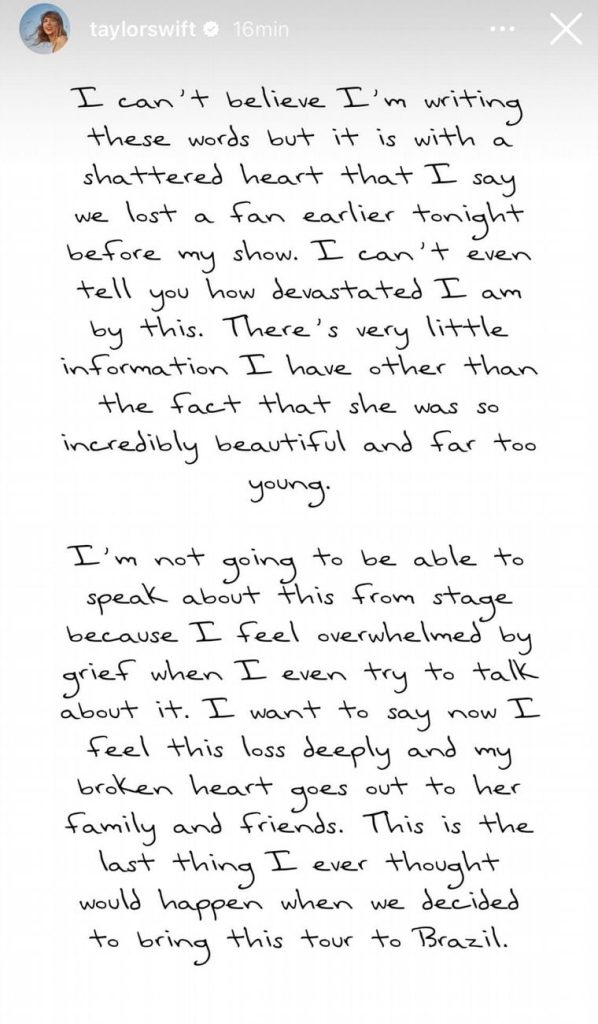 taylorswift 16min
I can't believe I'm writing
these words but it is with a
shattered heart that I say
we lost a fan earlier tonight
before my show. I can't even
tell you how devastated I am
by this. There's very little
information I have other than
the fact that she was so
incredibly beautiful and far too
young.
I'm not going to be able to
speak about this from stage
because I feel overwhelmed by
grief when I even try to talk
about it. I want to say now I
feel this loss deeply and my
broken heart goes out to her
family and friends. This is the
last thing I ever thought
would happen when we decided
to bring this tour to Brazil.